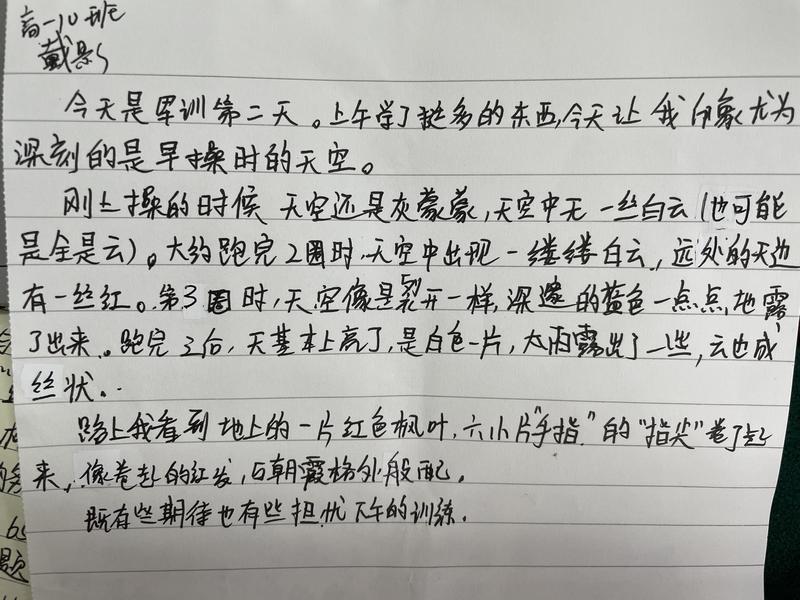 高一10班
戴影
今天是军训第二天。上午学了挺多的东西,今天让我印象尤为
深刻的是早操时的天空。
刚上操的时候 天空还是灰蒙蒙,天空中无一丝白云(也可能
是全是云)。大约跑完2圈时,天空中出现一缕缕白云,远处的天边
有一丝红。第3圈时,天空像是裂开一样,深邃的蓝色一点点地露
了出来。跑完之后,天基本上亮了,是白色一片,太阳露出了一些,云也成
丝状。
路上我看到地上的一片红色枫叶,六小片“手指”的“指尖”卷了起
来,像卷起的红发,与朝霞格外般配。
既有些期待也有些担忧下午的训练。